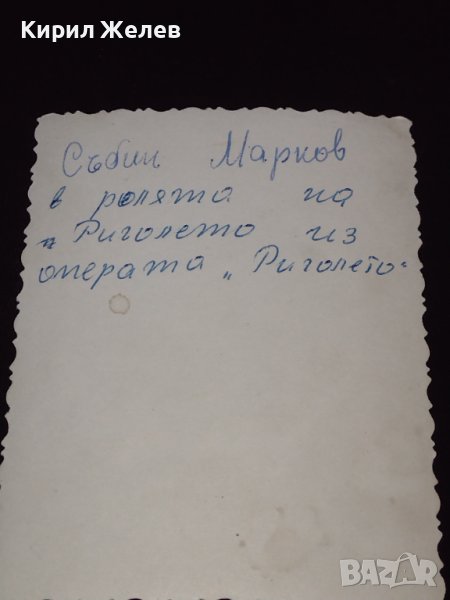 Кирил Желев
Събин Марков
в ролята на
„Риголето из
операта „Риголето“
BAZAR